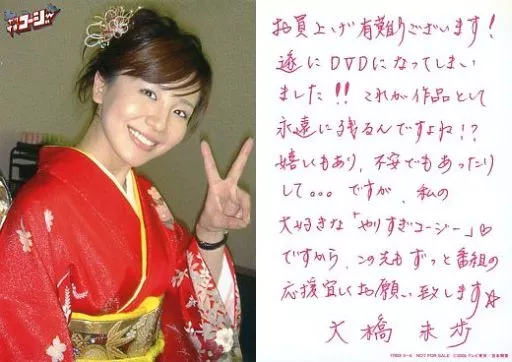 やりすぎコージー
お買上げ有難うございます!
遂にDVDになってしまい
ました!! これが作品として
永遠に残るんですよね!?
嬉しくもあり、不安でもあったり
して。。。ですが、私の
大好きな「やりすぎコージー」♡
ですから、この先もずっと番組の
応援宜しくお願い致します☆
大橋未歩
NOT FOR SALE